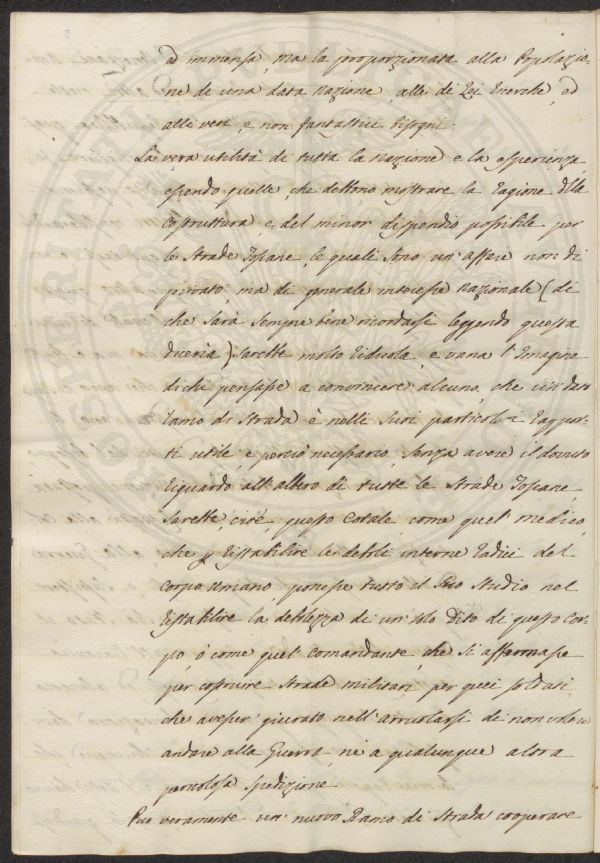 ed immensa, ma la proporzionata alla Popolazio-
ne de una data Nazione, alle di Lei ricerche, ed
alli veri, e non fantastici bisogni.
La vera utilità di tutta la Nazione, e la esperienza
essendo quelle, che debbono mostrare la ragione della
costruttura, e del minor dispendio possibile per
le strade Toscane, le quali sono un'affare non di
privato, ma di generale interesse Nazionale (di
che sarà sempre bene ricordarsi leggendo questa
diceria) sarebbe molto ridicola, e vana l'Imagine
di chi pensasse a convincere alcuno, che un dato
ramo di strada è nelli suoi particolari rappor-
ti utile, e perciò necessario, senza avere il dovuto
riguardo all'albero di tutte le strade Toscane.
Sarebbe, cioè, questo cotale, come quel medico,
che p ristabilire le deboli interne radici del
corpo umano, ponesse tutto il suo studio nel
ristabilire la debolezza di un solo dito di questo Cor-
po, o come quel comandante, che si affannasse
per costruire strade militari per quei soldati,
che avesser giurato nell'arruolarsi di non volere
andare alla Guerra, nè a qualunque altra
pericolosa spedizione.
Puo veramente un nuovo Ramo di strada cooperare